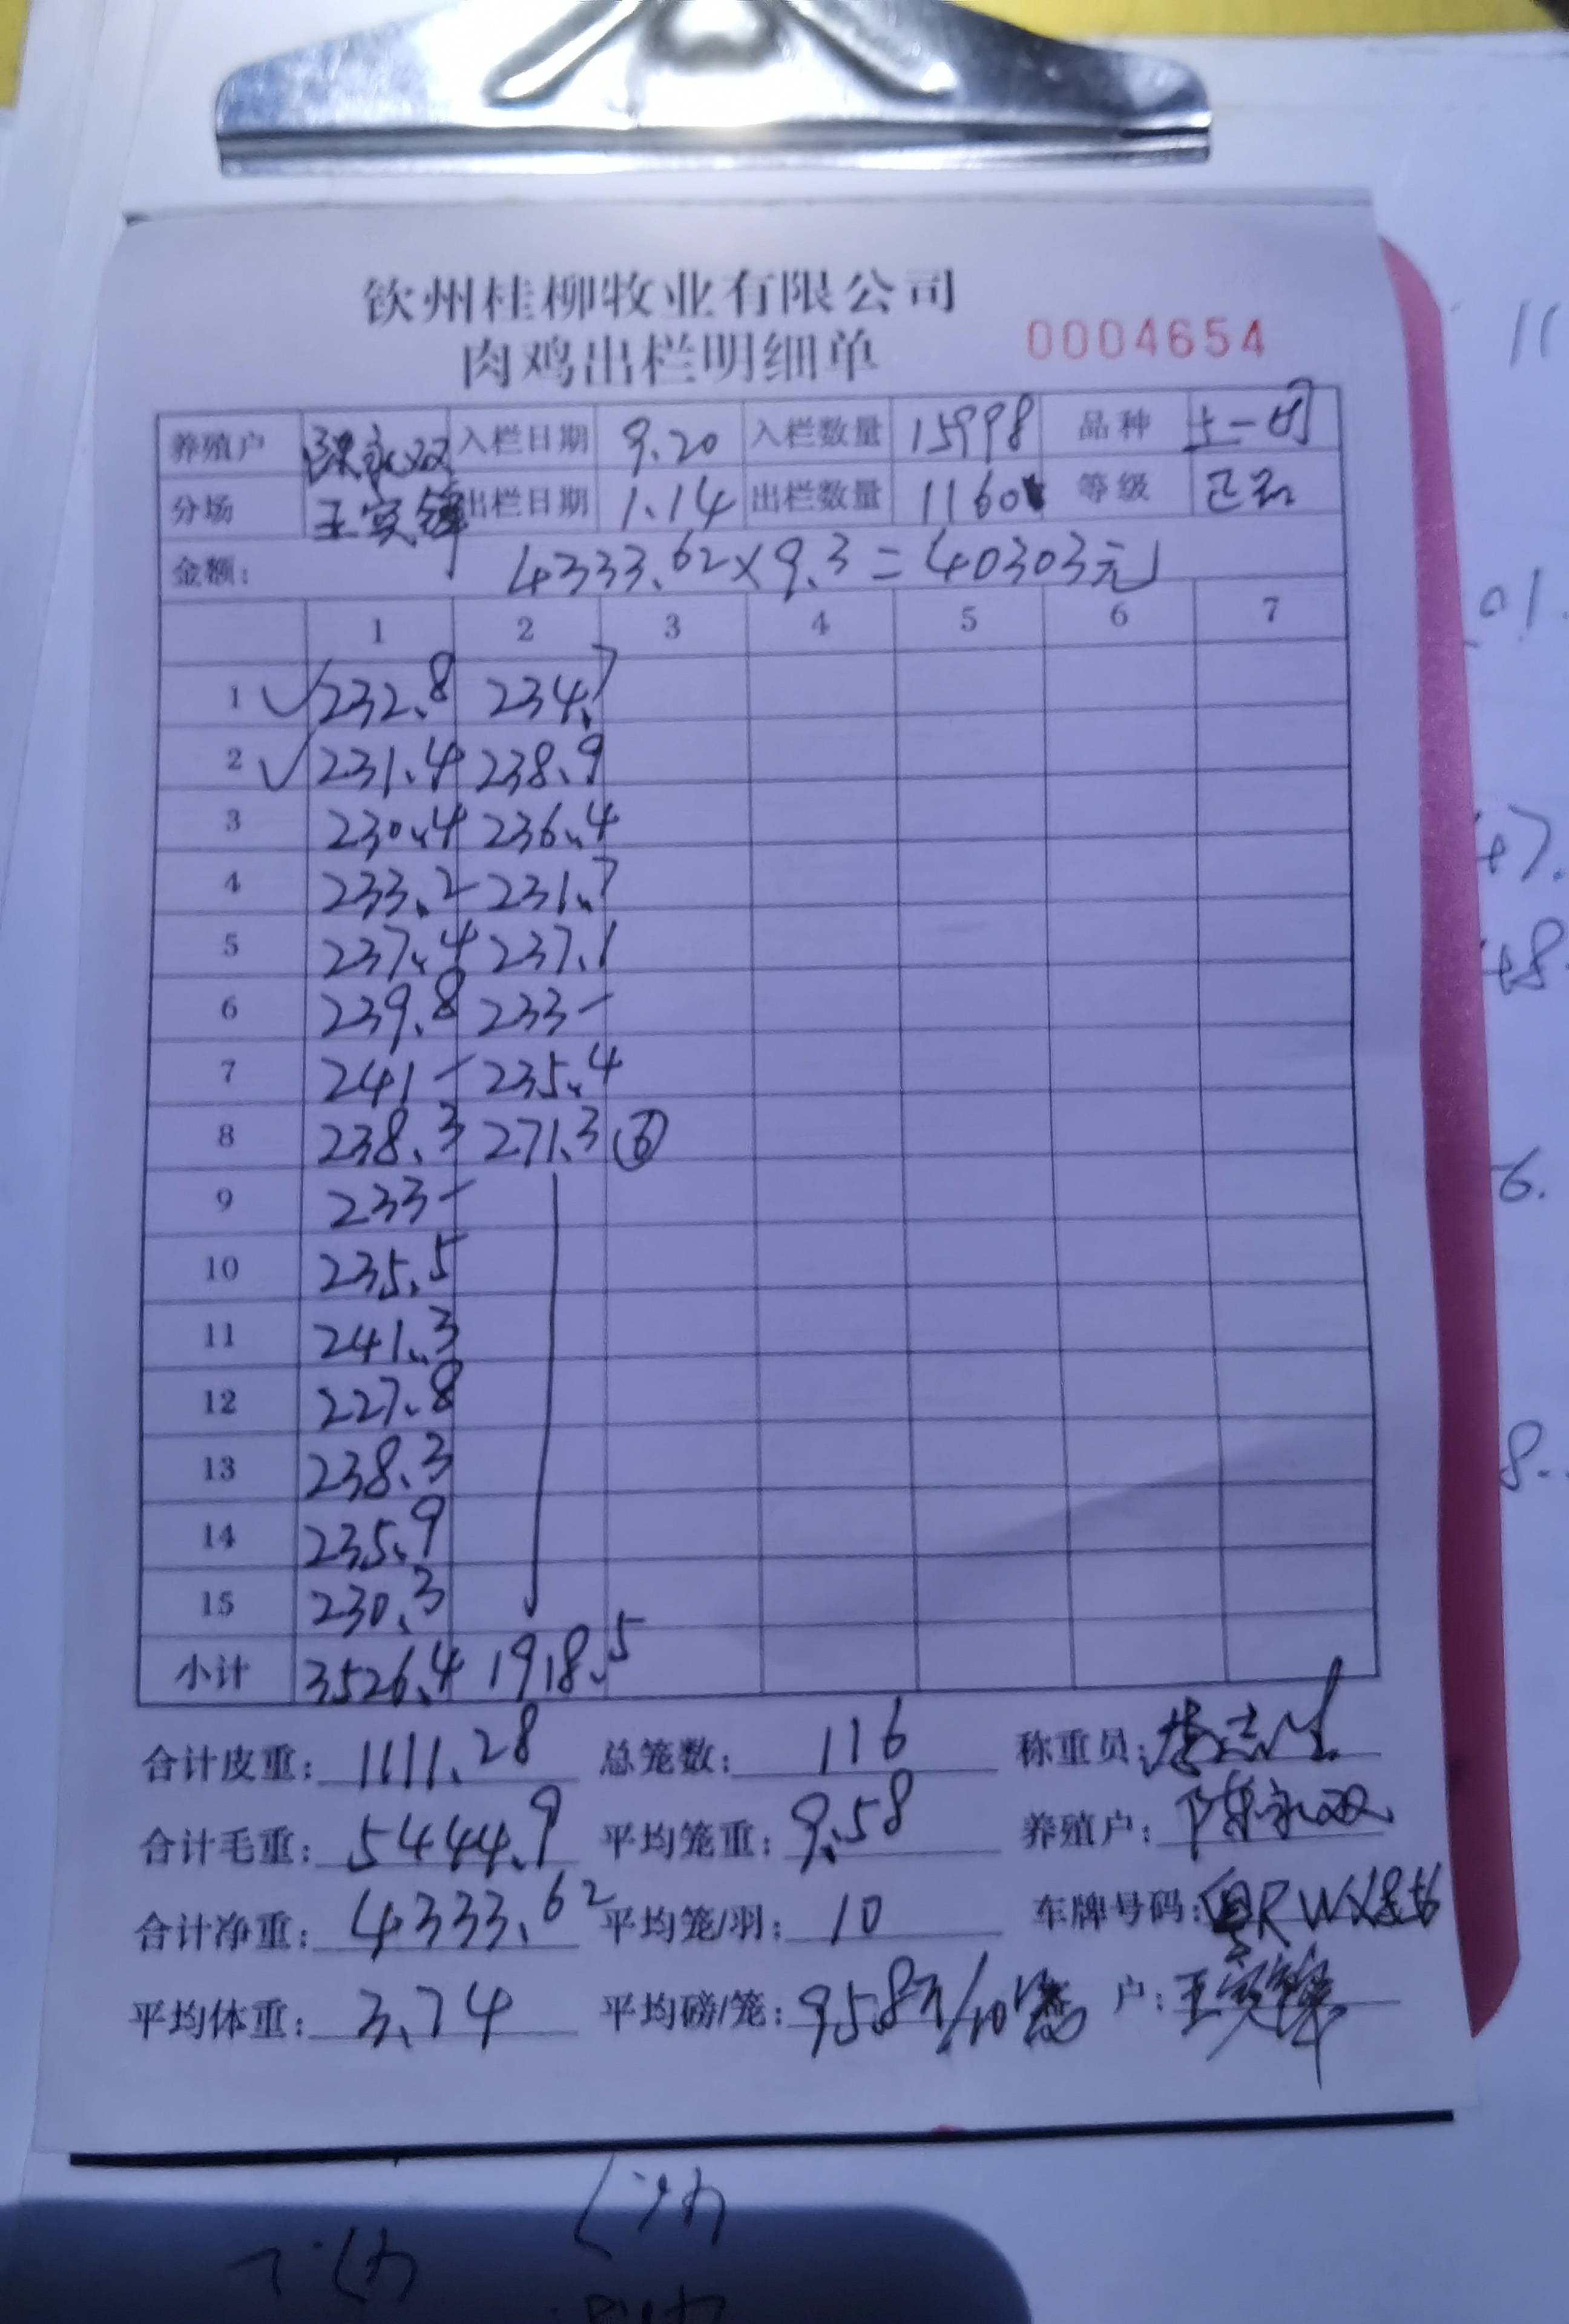 钦州桂柳牧业有限公司
肉鸡出栏明细单 0004654
养殖户 陈永双 入栏日期 9.20 入栏数量 15998 品种 土一
分场 王 出栏日期 1.14 出栏数量 1160 等级 正品
金额: 4333.62×9.3=40303元
1 2 3 4 5 6 7
1 232.8 234.7
2 231.4 238.9
3 230.4 236.4
4 233.2 231.7
5 237.4 237.1
6 239.8 233-
7 241- 235.4
8 238.3 271.3 ⑥
9 233-
10 235.5
11 241.3
12 227.8
13 238.3
14 235.9
15 230.3
小计 3526.4 1918.5
合计皮重: 1111.28 总笼数: 116 称重员:
合计毛重: 5444.9 平均笼重: 9.58 养殖户: 陈永双
合计净重: 4333.62 平均笼/羽: 10 车牌号码: 粤RWX8
平均体重: 3.74 平均磅/笼: 95.8斤/10 户: 王